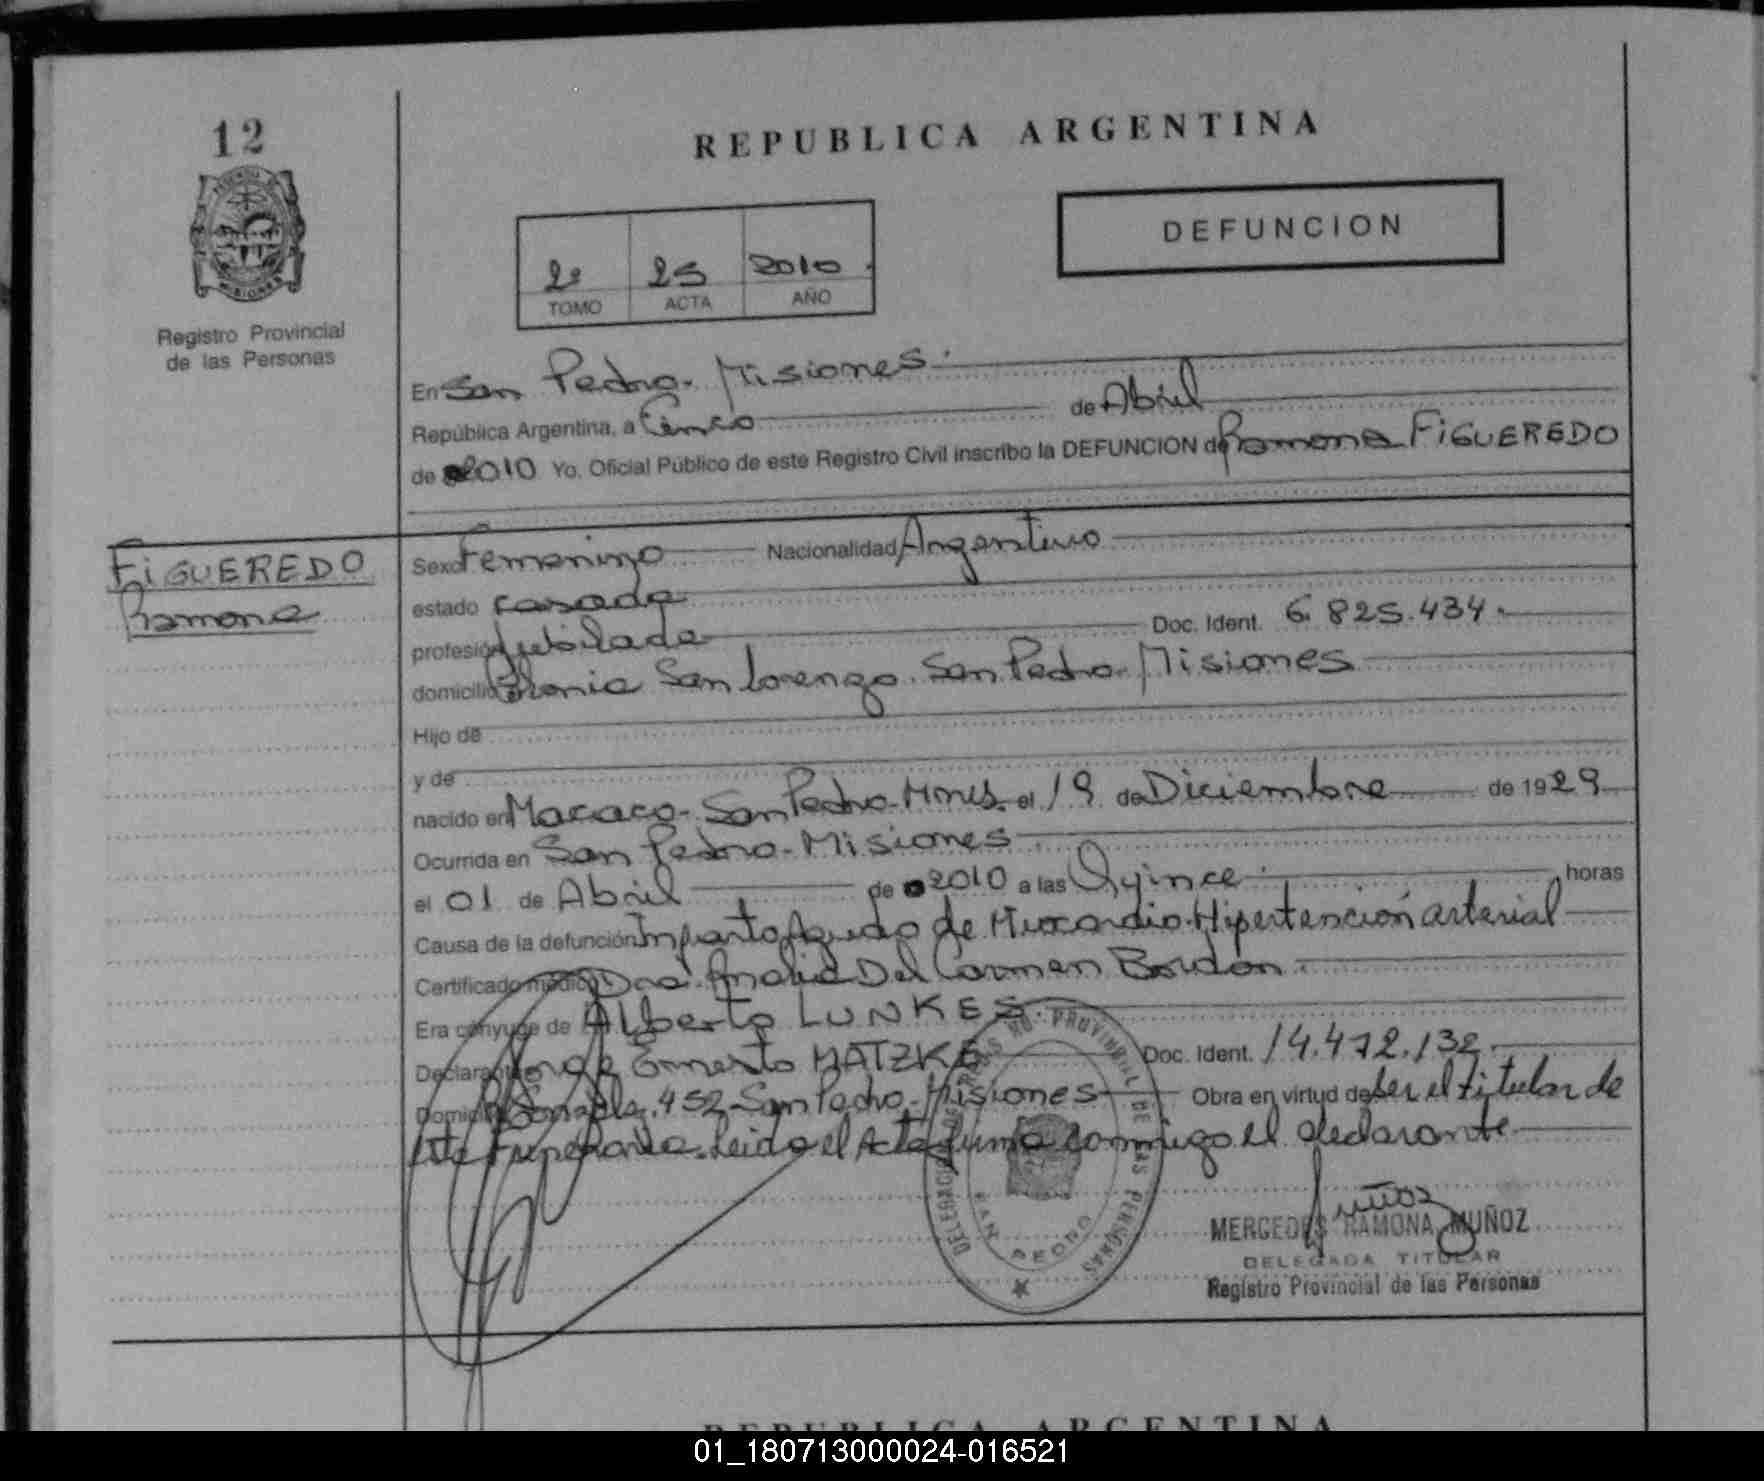 12
REPUBLICA ARGENTINA
DEFUNCION
2º 25 2010
TOMO ACTA AÑO
Registro Provincial
de las Personas
En San Pedro. Misiones.
República Argentina, a Cinco de Abril
de 2010 Yo. Oficial Público de este Registro Civil inscribo la DEFUNCION de Ramona FIGUEREDO
FIGUEREDO
Ramona
Sexo Femenino Nacionalidad Argentino
estado casada
profesión Jubilada Doc. Ident. 6.825.434.
domicilio Colonia San Lorenzo. San Pedro. Misiones
Hijo de
y de
nacido en Macaco. San Pedro. Mnes. el 19 de Diciembre de 1929
Ocurrida en San Pedro. Misiones
el 01 de Abril de 2010 a las Quince horas
Causa de la defunción Infarto Agudo de Miocardio. Hipertensión arterial
Certificado médico Dra. Analia Del Carmen Bordón.
Era cónyuge de Alberto LUNKES.
Declarante Ernesto MATZKE Doc. Ident. 14.472.132.
Domicilio 452 San Pedro. Misiones Obra en virtud de Ser el titular de
Leida el Acta firma conmigo el declarante
DELEGACION PROVINCIAL DE LAS PERSONAS
SAN PEDRO
MERCEDES RAMONA MUÑOZ
DELEGADA TITULAR
Registro Provincial de las Personas
REPUBLICA ARGENTINA
01_180713000024-016521